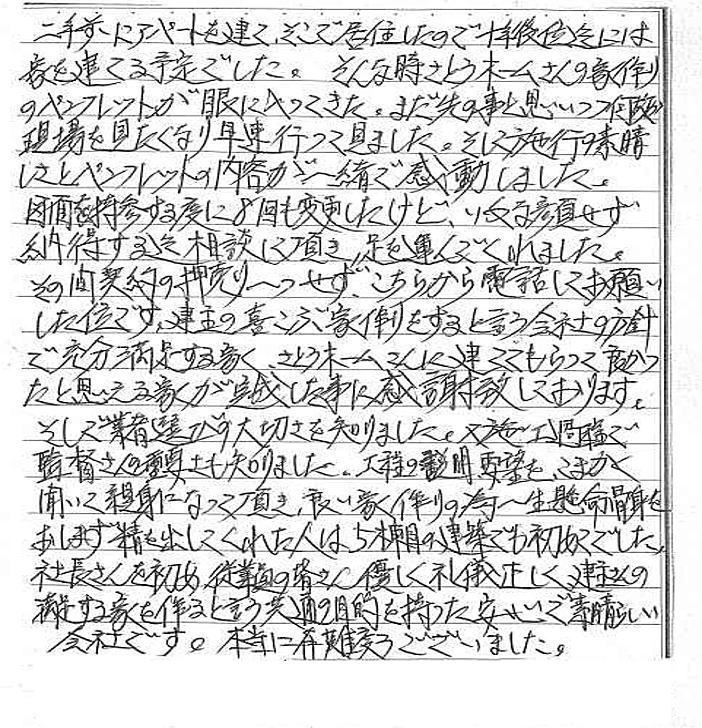 二年前にアパートを建て、そこで居住したので十年後位先には
家を建てる予定でした。そんな時さとうホームさんの家作り
のパンフレットが眼に入ってきた。まだ先の事と思いつつ何故か
現場を見たくなり早速行って見ました。そして施行の素晴
しさとパンフレットの内容が一緒で感動しました。
図面を持参する度に8回も変更したけど、いやな顔せず
納得する迄相談して頂き、足を運んでくれました。
その間契約の押売り一つせず、こちらから電話してお願い
した位です。建主の喜こぶ家作りをすると言う会社の方針
で充分満足する家、さとうホームさんに建ててもらって良かっ
たと思える家が完成した事に感謝致しております。
そして業者選びの大切さを知りました。又施工過程で
監督さんの重要さも知りました。工程の説明要望を、こまかく
聞いて親身になって頂き、良い家作りの為一生懸命骨身を
おしまず精を出してくれた人は、5棟目の建築でも初めてでした。
社長さんを初め、従業員の皆さん優しく礼儀正しく建主さんの
満足する家を作ると言う共通の目的を持った安心で素晴らしい
会社です。本当に有難うございました。